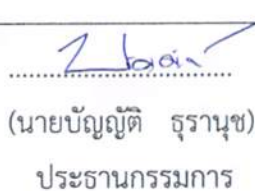 (นายบัญญัติ ธุรานุช)
ประธานกรรมการ